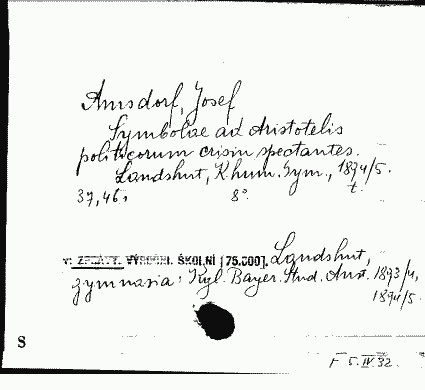 Amsdorf, Josef
Symbolae ad Aristotelis
politicorum crisin spectantes.
Landshut, K. hum. Gym., 1894/5.
37, 46,  8°  t.
v: ZPRÁVY. VÝROČNÍ. ŠKOLNÍ [75.000]. Landshut,
gymnasia: Kgl. Bayer. Stud. Anst. 1893/4,
1894/5.
S
F 5. IV. 32.